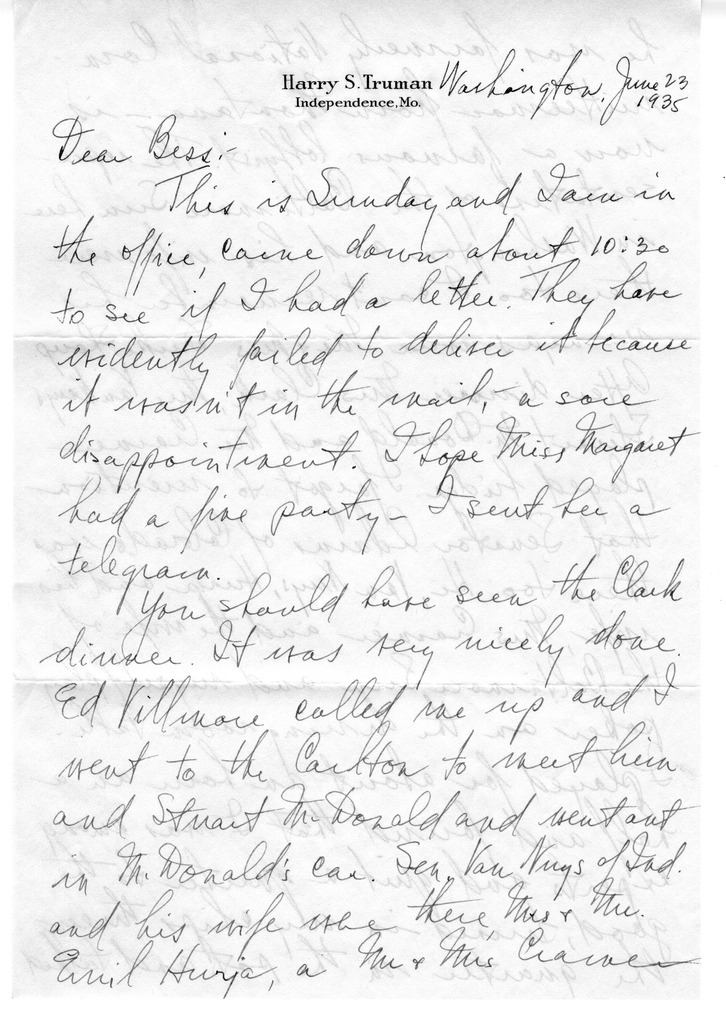 Harry S. Truman Washington, June 23
Independence, Mo. 1935
Dear Bess:-
This is Sunday and I am in
the office, came down about 10:30
to see if I had a letter. They have
evidently failed to deliver it because
it wasn't in the mail,- a sore
disappointment. I hope Miss Margaret
had a fine party - I sent her a
telegram.
You should have seen the Clark
dinner. It was very nicely done.
Ed Villmore called me up and I
went to the Carlton to meet him
and Stuart McDonald and went out
in McDonald's car. Sen. Van Nuys of Ind.
and his wife were there, Mrs & Mr.
Emil Hurja, a Mr & Mrs Cramer